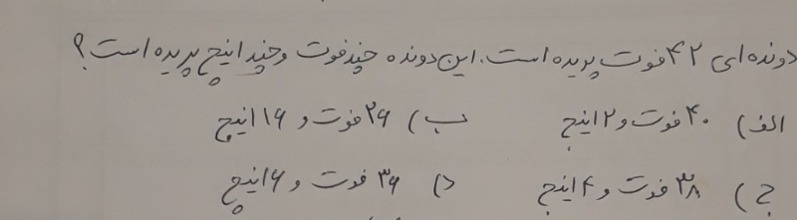 دونده ای ۴۲ فوت پریده است. این دونده چند فوت و چند اینچ پریده است؟
الف) ۴۰ فوت و ۲ اینچ ب) ۲۶ فوت و ۱۶ اینچ
ج) ۳۸ فوت و ۴ اینچ د) ۳۶ فوت و ۶ اینچ